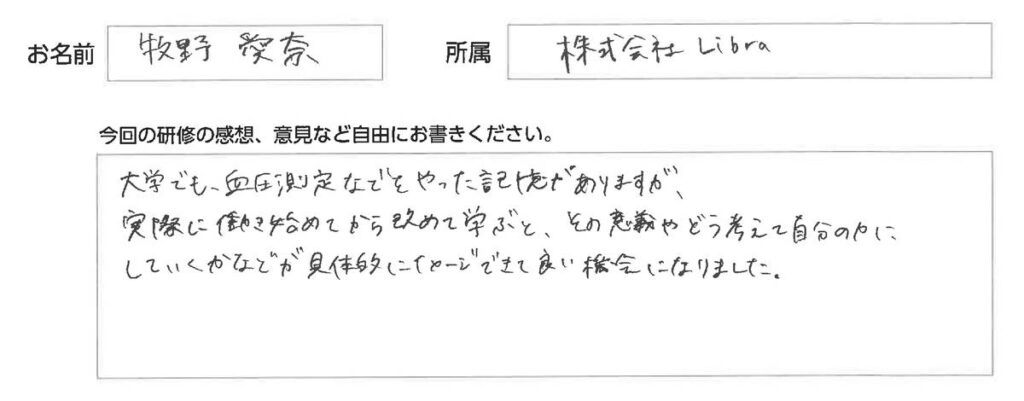 お名前 牧野 愛奈 所属 株式会社 Libra
今回の研修の感想、意見など自由にお書きください。
大学でも、血圧測定などをやった記憶がありますが、
実際に働き始めてから改めて学ぶと、その意義やどう考えて自分の力に
していくかなどが具体的にイメージできて良い機会になりました。